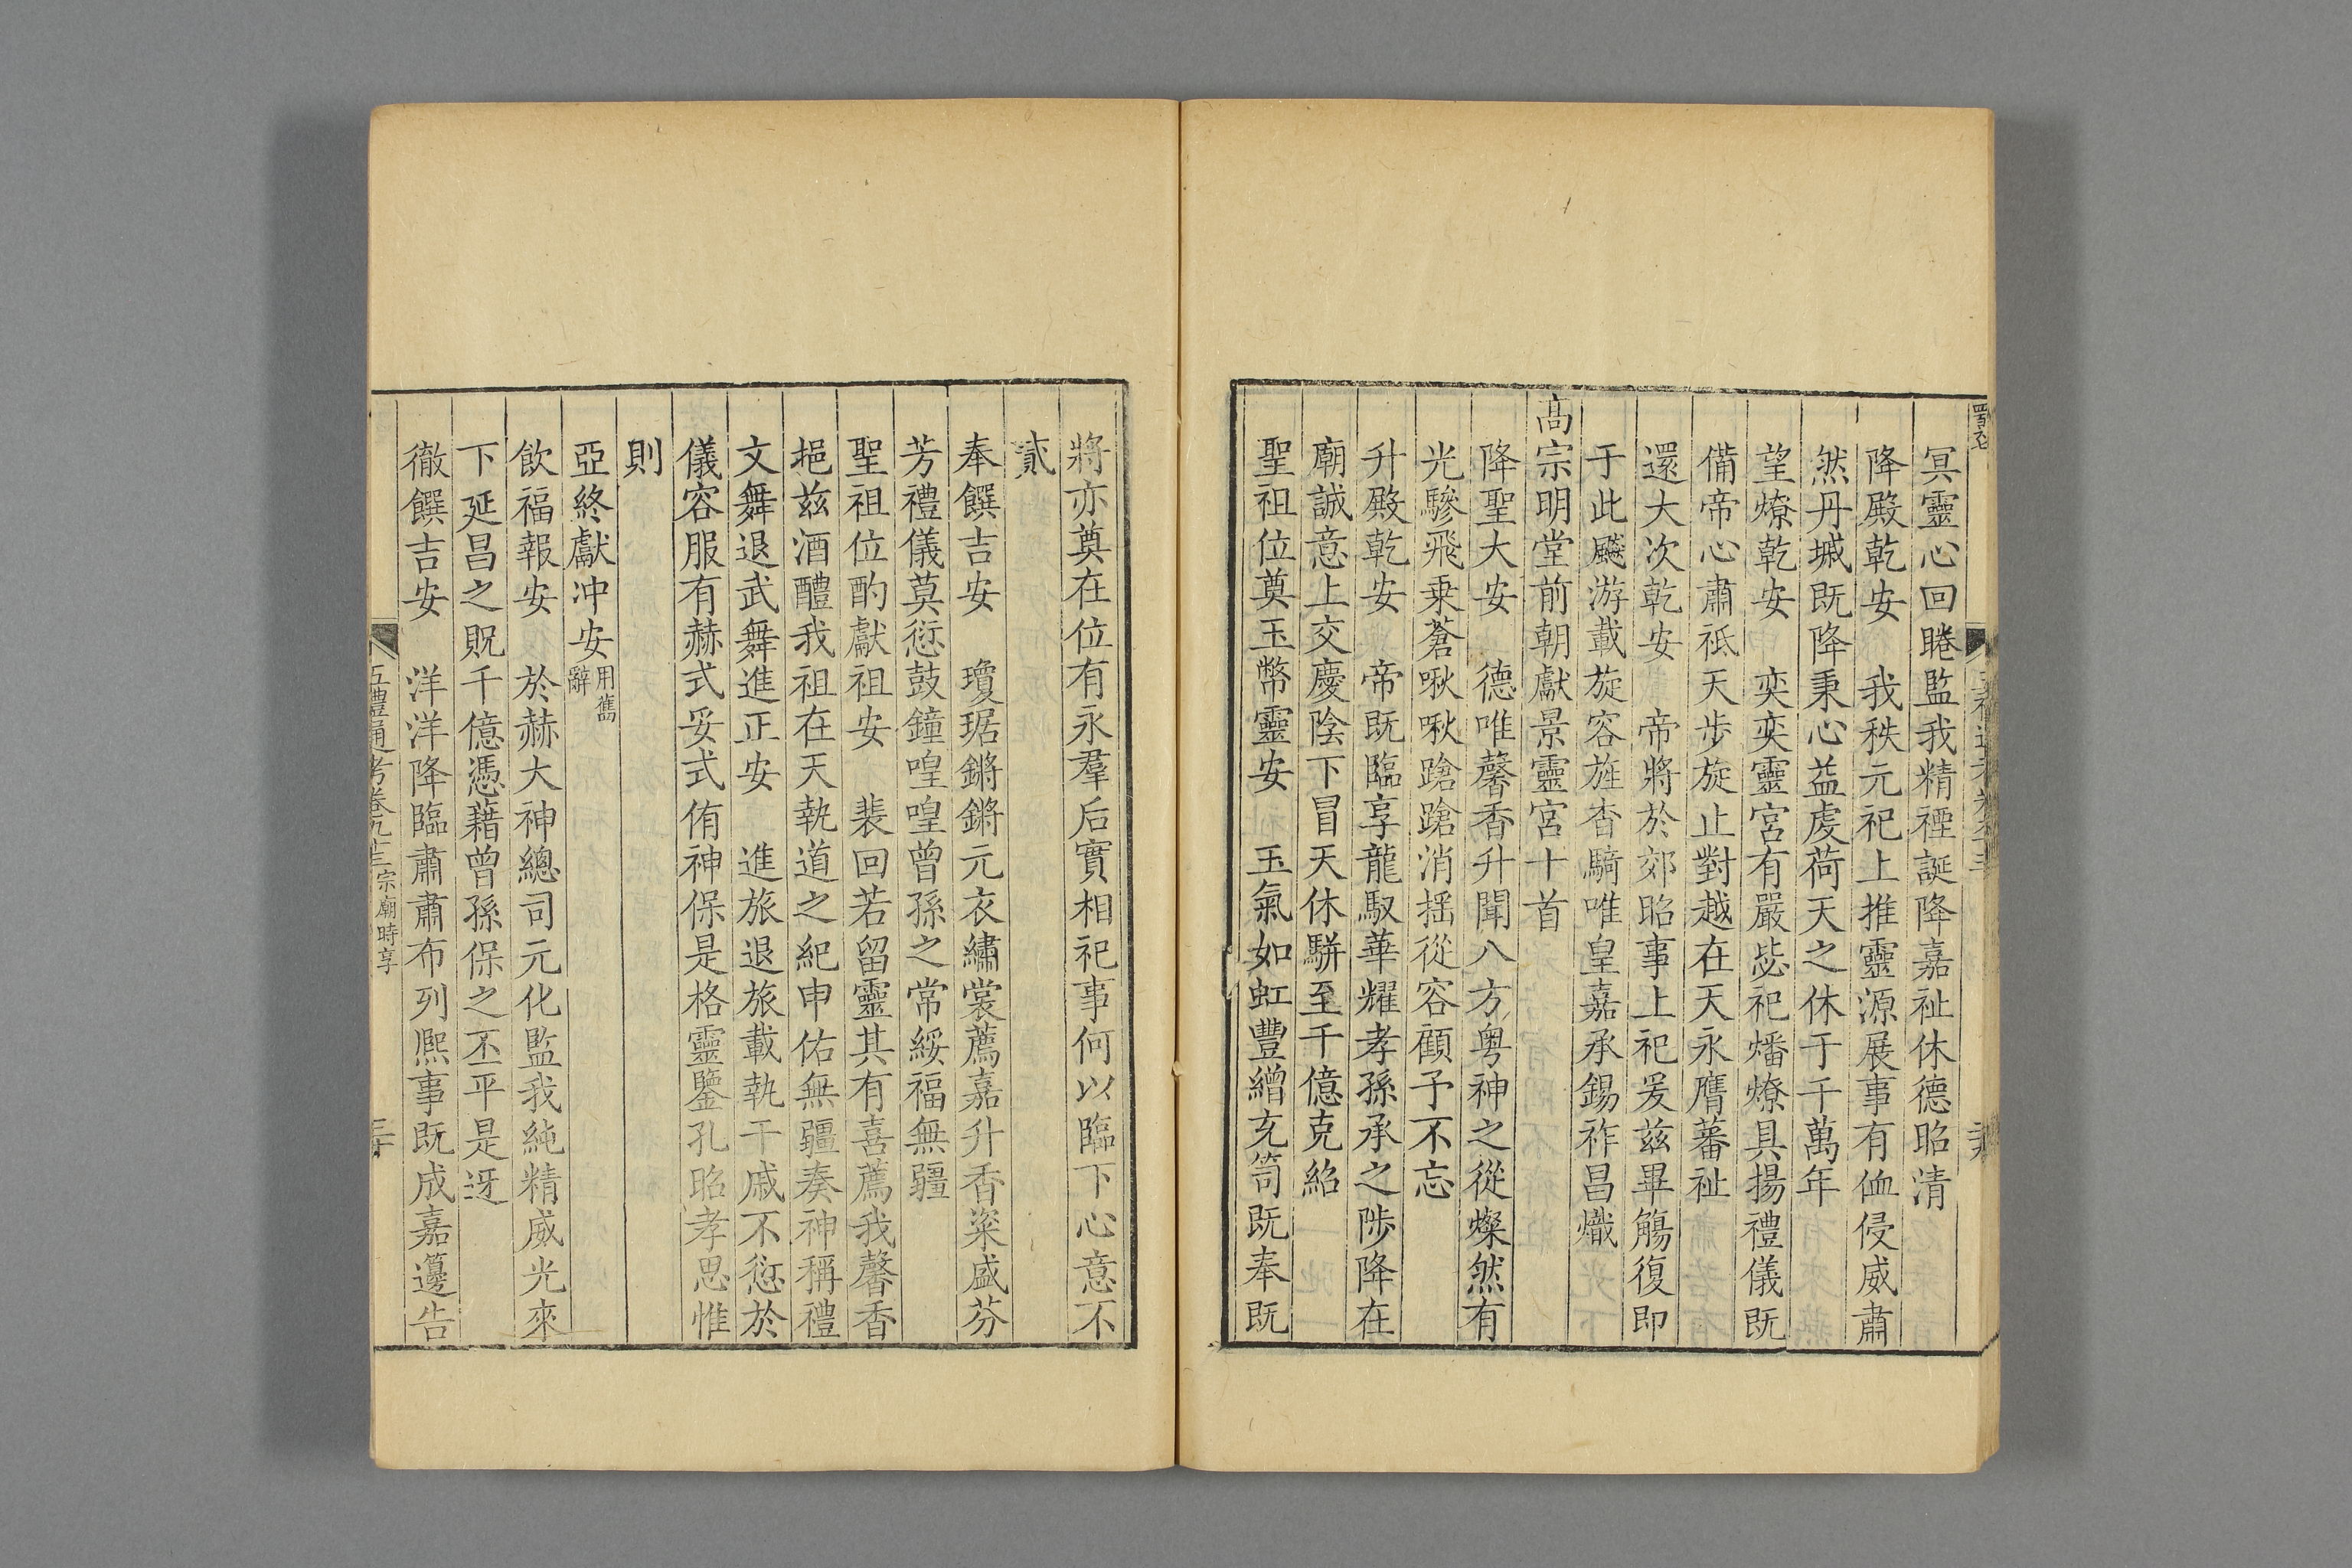 冥靈心回睠監我精禋誕降嘉祉休德昭清
降殿乾安　我秩元祀上推靈源展事有侐侵威肅
然丹墄既降秉心益虔荷天之休于千萬年
望燎乾安　奕奕靈宮有嚴毖祀燔燎具揚禮儀既
備帝心肅祗天步旋止對越在天永膺蕃祉
還大次乾安　帝將於郊昭事上祀爰茲畢觴復即
于此飈游載旋容旌杳騎唯皇嘉承錫祚昌熾
高宗明堂前朝獻景靈宮十首
降聖大安　德唯馨香升聞八方粵神之從燦然有
光驂飛乗蒼啾啾蹌蹌消摇從容顧予不忘
升殿乾安　帝既臨享龍馭華耀孝孫承之陟降在
廟誠意上交慶陰下冒天休駢至千億克紹
聖祖位奠玉幣靈安　玉氣如虹豐繒充笥既奉既
將亦奠在位有永羣后實相祀事何以臨下心意不
貳
奉饌吉安　瓊琚鏘鏘元衣繡裳薦嘉升香粢盛芬
芳禮儀莫愆鼓鐘喤喤曾孫之常綏福無疆
聖祖位酌獻祖安　裴回若留靈其有喜薦我馨香
挹茲酒醴我祖在天執道之紀申佑無疆奏神稱禮
文舞退武舞進正安　進旅退旅載執干戚不愆於
儀容服有赫式妥式侑神保是格靈鑒孔昭孝思惟
則
亞終獻沖安用舊辭
飲福報安　於赫大神總司元化監我純精威光來
下延昌之貺千億憑藉曾孫保之丕平是迓
徹饌吉安　洋洋降臨肅肅布列熙事既成嘉籩告
五禮通考卷九十三宗廟時享　三十